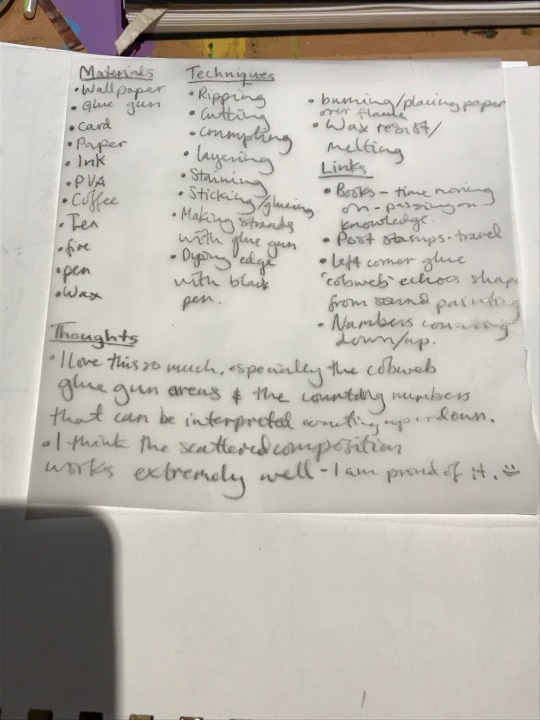 Materials
• Wallpaper
• Glue gun
• Card
• Paper
• Ink
• PVA
• Coffee
• Tea
• fire
• pen
• Wax
Techniques
• Ripping
• Cutting
• Crumpling
• Layering
• Staining
• Sticking/glueing
• Making strands
with glue gun
• Dying edge
with black
pen.
• burning/placing paper
over flame
• Wax resist/
melting
Links
• Books - time moving
on - passing on
knowledge.
• Post stamps - travel
• Left corner glue
'cobweb' echoes shape
from sound painting
• Numbers counting
down/up.
Thoughts
• I love this so much, especially the cobweb
glue gun areas & the counting numbers
that can be interpreted counting up or down.
• I think the scattered composition
works extremely well - I am proud of it. :)